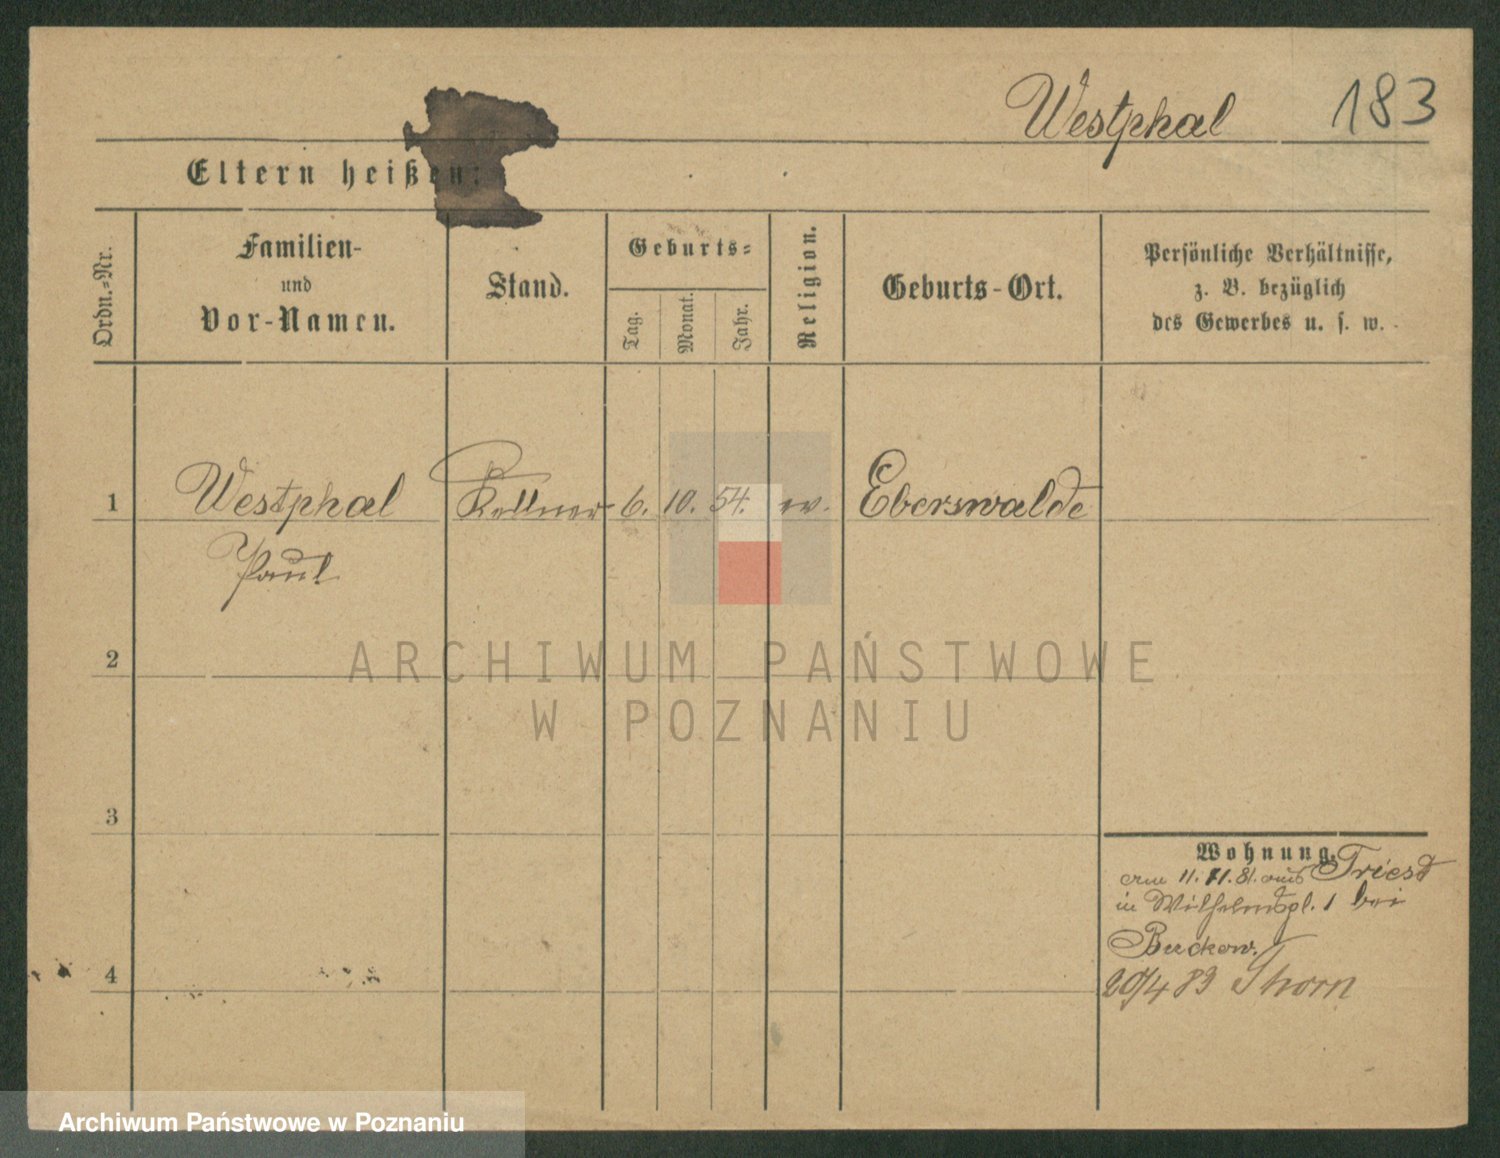 Westphal 183
Eltern heißen:
Ordn.-Nr.
Familien-
und
Vor-Namen.
Stand.
Geburts-
Tag.
Monat.
Jahr.
Religion.
Geburts-Ort.
Persönliche Verhältnisse,
z. B. bezüglich
des Gewerbes u. s. w.
1 Westphal Kellner 6. 10. 54. ev. Eberswalde
Paul
2
3
4
Wohnung.
am 11. 11. 81. aus Triest
in Wilhelmspl. 1 bei
Buckow.
20/4 83 Thorn
ARCHIWUM PAŃSTWOWE
W POZNANIU
Archiwum Państwowe w Poznaniu